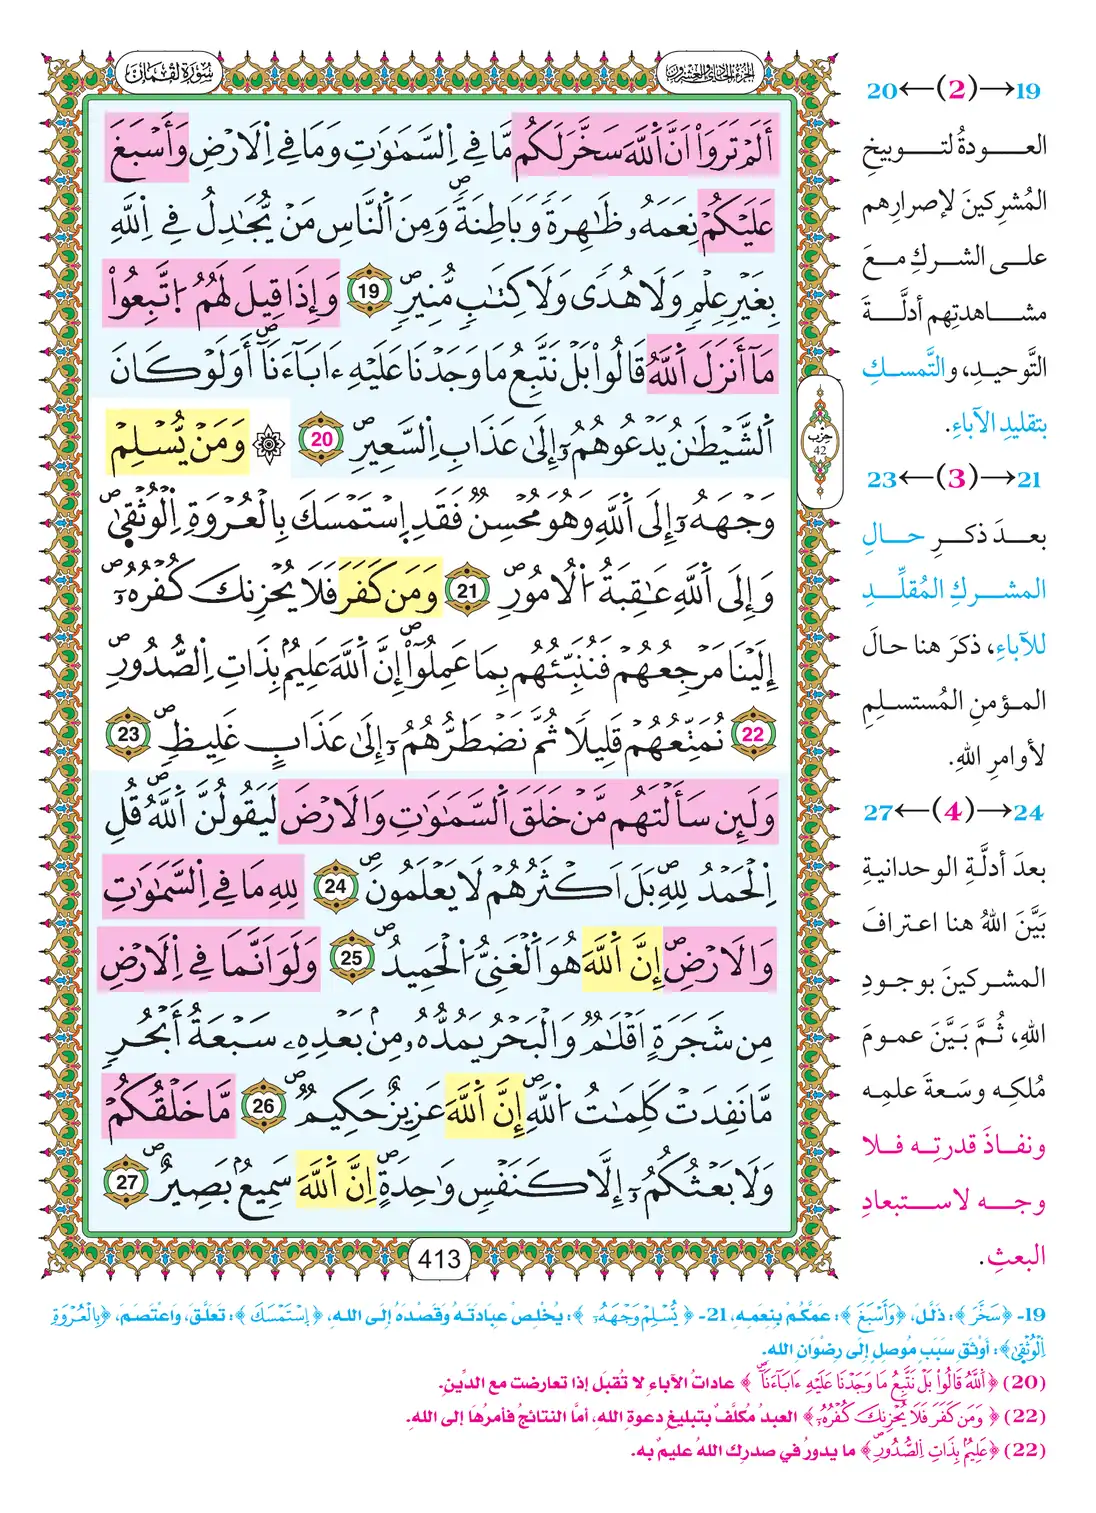 سورة لقمان
الجزء الحادي والعشرون
أَلَمْ تَرَوَاْ اَنَّ اَ۬للَّهَ سَخَّرَ لَكُم مَّا فِے اِ۬لسَّمَٰوَٰتِ وَمَا فِے اِ۬لَارْضِ وَأَسْبَغَ
عَلَيْكُمْ نِعَمَهُۥ ظَٰهِرَةٗ وَبَاطِنَةٗۖ وَمِنَ اَ۬لنَّاسِ مَنْ يُّجَٰدِلُ فِے اِ۬للَّهِ
بِغَيْرِ عِلْمٖ وَلَا هُديٗ وَلَا كِتَٰبٖ مُّنِيرٖۖ 19 وَإِذَا قِيلَ لَهُمُ اُ۪تَّبِعُواْ
مَآ أَنزَلَ اَ۬للَّهُ قَالُواْ بَلْ نَتَّبِعُ مَا وَجَدْنَا عَلَيْهِ ءَابَآءَنَآۖ أَوَلَوْ كَانَ
اَ۬لشَّيْطَٰنُ يَدْعُوهُمُۥٓ إِلَىٰ عَذَابِ اِ۬لسَّعِيرِۖ 20 ۞ وَمَنْ يُّسْلِمْ
وَجْهَهُۥٓ إِلَى اَ۬للَّهِ وَهُوَ مُحْسِنٞ فَقَدِ اِ۪سْتَمْسَكَ بِالْعُرْوَةِ اِ۬لْوُثْق۪يٰۖ
وَإِلَى اَ۬للَّهِ عَٰقِبَةُ اُ۬لُامُورِۖ 21 وَمَن كَفَرَ فَلَا يُحْزِنكَ كُفْرُهُۥٓۖ
إِلَيْنَا مَرْجِعُهُمْ فَنُنَبِّئُهُم بِمَا عَمِلُوٓاْۖ إِنَّ اَ۬للَّهَ عَلِيمُۢ بِذَاتِ اِ۬لصُّدُورِۖ
22 نُمَتِّعُهُمْ قَلِيلٗا ثُمَّ نَضْطَرُّهُمُۥٓ إِلَىٰ عَذَابٍ غَلِيظٖۖ 23
وَلَئِن سَأَلْتَهُم مَّنْ خَلَقَ اَ۬لسَّمَٰوَٰتِ وَالَارْضَ لَيَقُولُنَّ اَ۬للَّهُۖ قُلِ
اِ۬لْحَمْدُ لِلهِۖ بَلَ اَكْثَرُهُمْ لَا يَعْلَمُونَۖ 24 لِلهِ مَا فِے اِ۬لسَّمَٰوَٰتِ
وَالَارْضِۖ إِنَّ اَ۬للَّهَ هُوَ اَ۬لْغَنِيُّ اُ۬لْحَمِيدُۖ 25 وَلَوَ اَنَّمَا فِے اِ۬لَارْضِ
مِن شَجَرَةٍ اَقْلَٰمٞ وَالْبَحْرُ يَمُدُّهُۥ مِنۢ بَعْدِهِۦ سَبْعَةُ أَبْحُرٖ
مَّا نَفِدَتْ كَلِمَٰتُ اُ۬للَّهِۖ إِنَّ اَ۬للَّهَ عَزِيزٌ حَكِيمٞۖ 26 مَّا خَلْقُكُمْ
وَلَا بَعْثُكُمُۥٓ إِلَّا كَنَفْسٖ وَٰحِدَةٍۖ اِنَّ اَ۬للَّهَ سَمِيعُۢ بَصِيرٌۖ 27
حزب
42
413
19→(2)←20
العودةُ لتوبيخِ
المُشركينَ لإصرارِهم
على الشركِ معَ
مشاهدتِهم أدلَّةَ
التَّوحيدِ، والتَّمسكِ
بتقليدِ الآباءِ.
21→(3)←23
بعدَ ذكرِ حالِ
المشركِ المُقلِّدِ
للآباءِ، ذكرَ هنا حالَ
المؤمنِ المُستسلِمِ
لأوامرِ اللهِ.
24→(4)←27
بعدَ أدلَّةِ الوحدانيةِ
بَيَّنَ اللهُ هنا اعترافَ
المشركينَ بوجودِ
اللهِ، ثُمَّ بَيَّنَ عمومَ
مُلكِه وسَعةَ علمِه
ونفاذَ قدرتِه فلا
وجه لاستبعادِ
البعثِ.
19- ﴿سَخَّرَ﴾: ذَلَّلَ، ﴿وَأَسْبَغَ﴾: عَمَّكُمْ بِنِعَمِهِ، 21- ﴿يُّسْلِمْ وَجْهَهُۥٓ﴾: يُخْلِصْ عِبَادَتَهُ وَقَصْدَهُ إِلَى اللهِ، ﴿اِ۪سْتَمْسَكَ﴾: تَعَلَّقَ، وَاعْتَصَمَ، ﴿بِالْعُرْوَةِ
اِ۬لْوُثْق۪يٰ﴾: أَوْثَقِ سَبَبٍ مُوصِلٍ إِلَى رِضْوَانِ اللهِ.
(20) ﴿اَ۬للَّهُ قَالُواْ بَلْ نَتَّبِعُ مَا وَجَدْنَا عَلَيْهِ ءَابَآءَنَآۖ﴾ عاداتُ الآباءِ لا تُقبَل إذا تعارضت مع الدِّينِ.
(22) ﴿وَمَن كَفَرَ فَلَا يُحْزِنكَ كُفْرُهُۥٓ﴾ العبدُ مُكلَّفٌ بتبليغِ دعوةِ اللهِ، أمَّا النتائجُ فأمرُهَا إلى اللهِ.
(22) ﴿عَلِيمُۢ بِذَاتِ اِ۬لصُّدُورِۖ﴾ ما يدورُ في صدرِك اللهُ عليمٌ به.